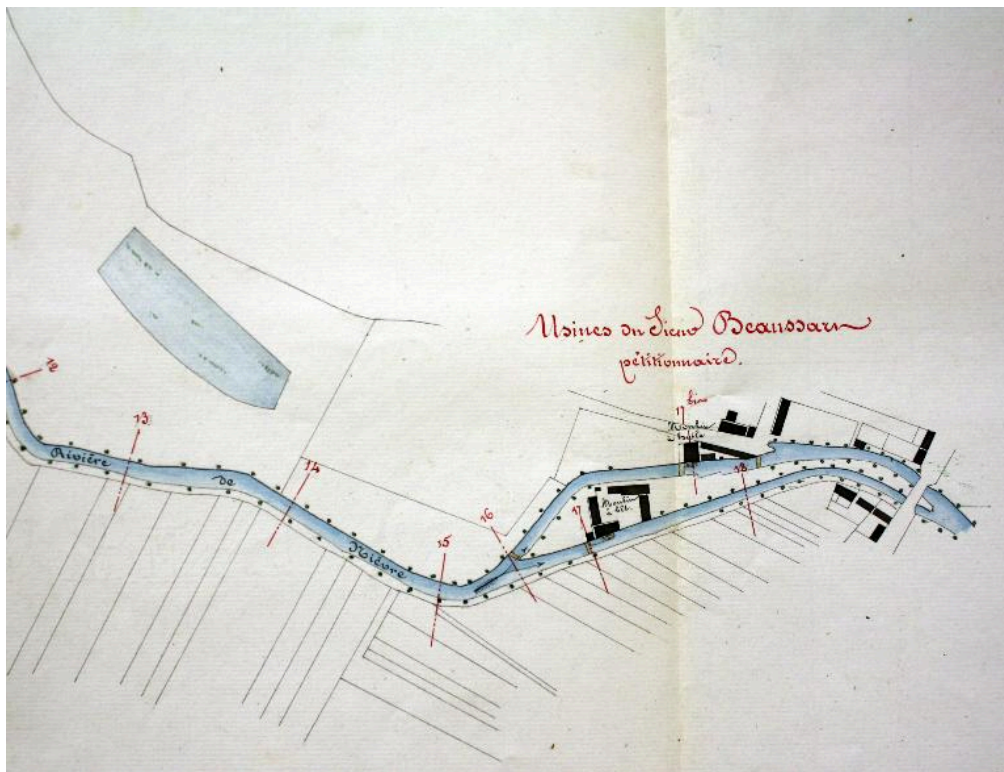 Usines du Sieur Beaussart
pétitionnaire.
12
13
14
15
16
17
17 bis
18
Rivière
de
Nièvre
Moulin
à huile
Moulin
à blé.